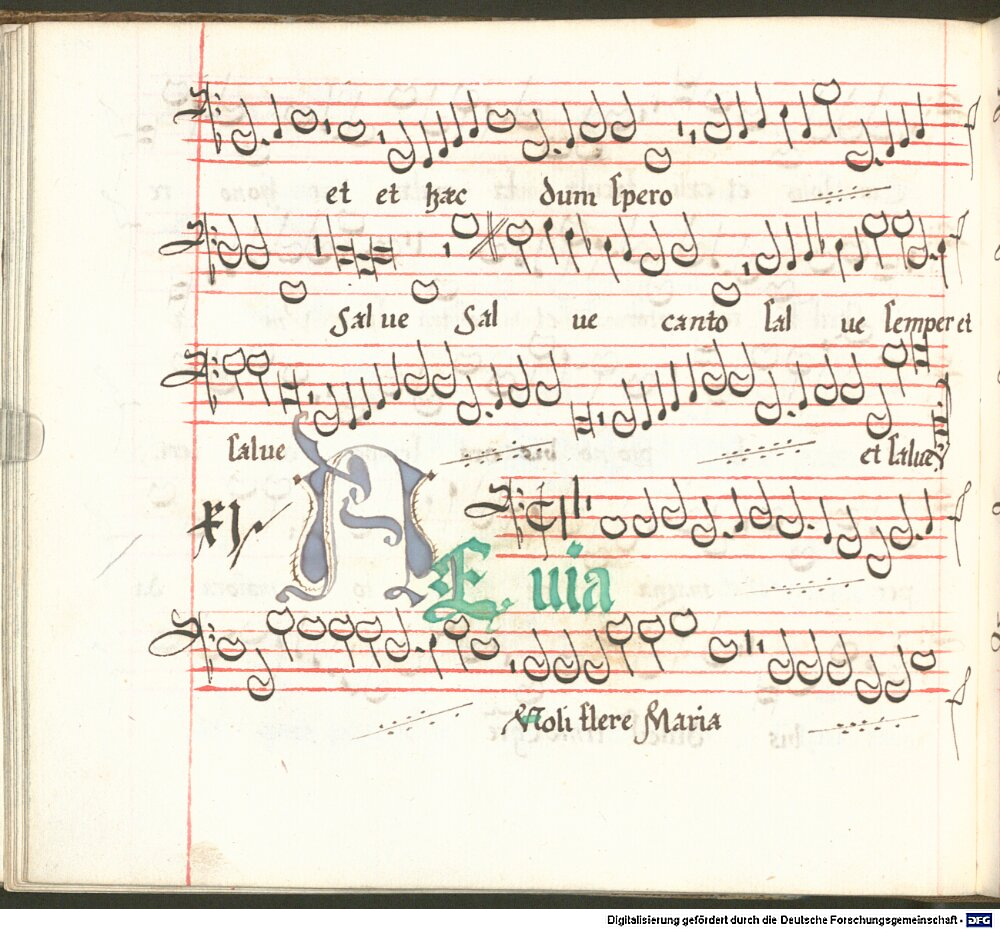 et et hæc dum spero
Salue Sal ue canto sal ue semper et
salue et salue
XI
N
E. uia
Noli flere Maria
Digitalisierung gefördert durch die Deutsche Forschungsgemeinschaft - DFG